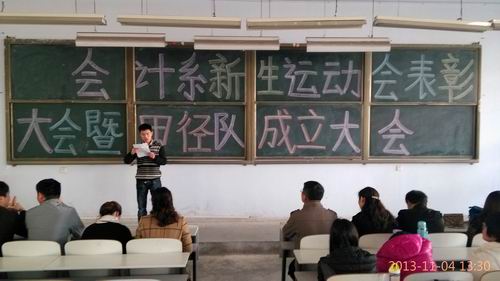 会计系新生运动会表彰
大会暨田径队成立大会
2013-11-04 13:30